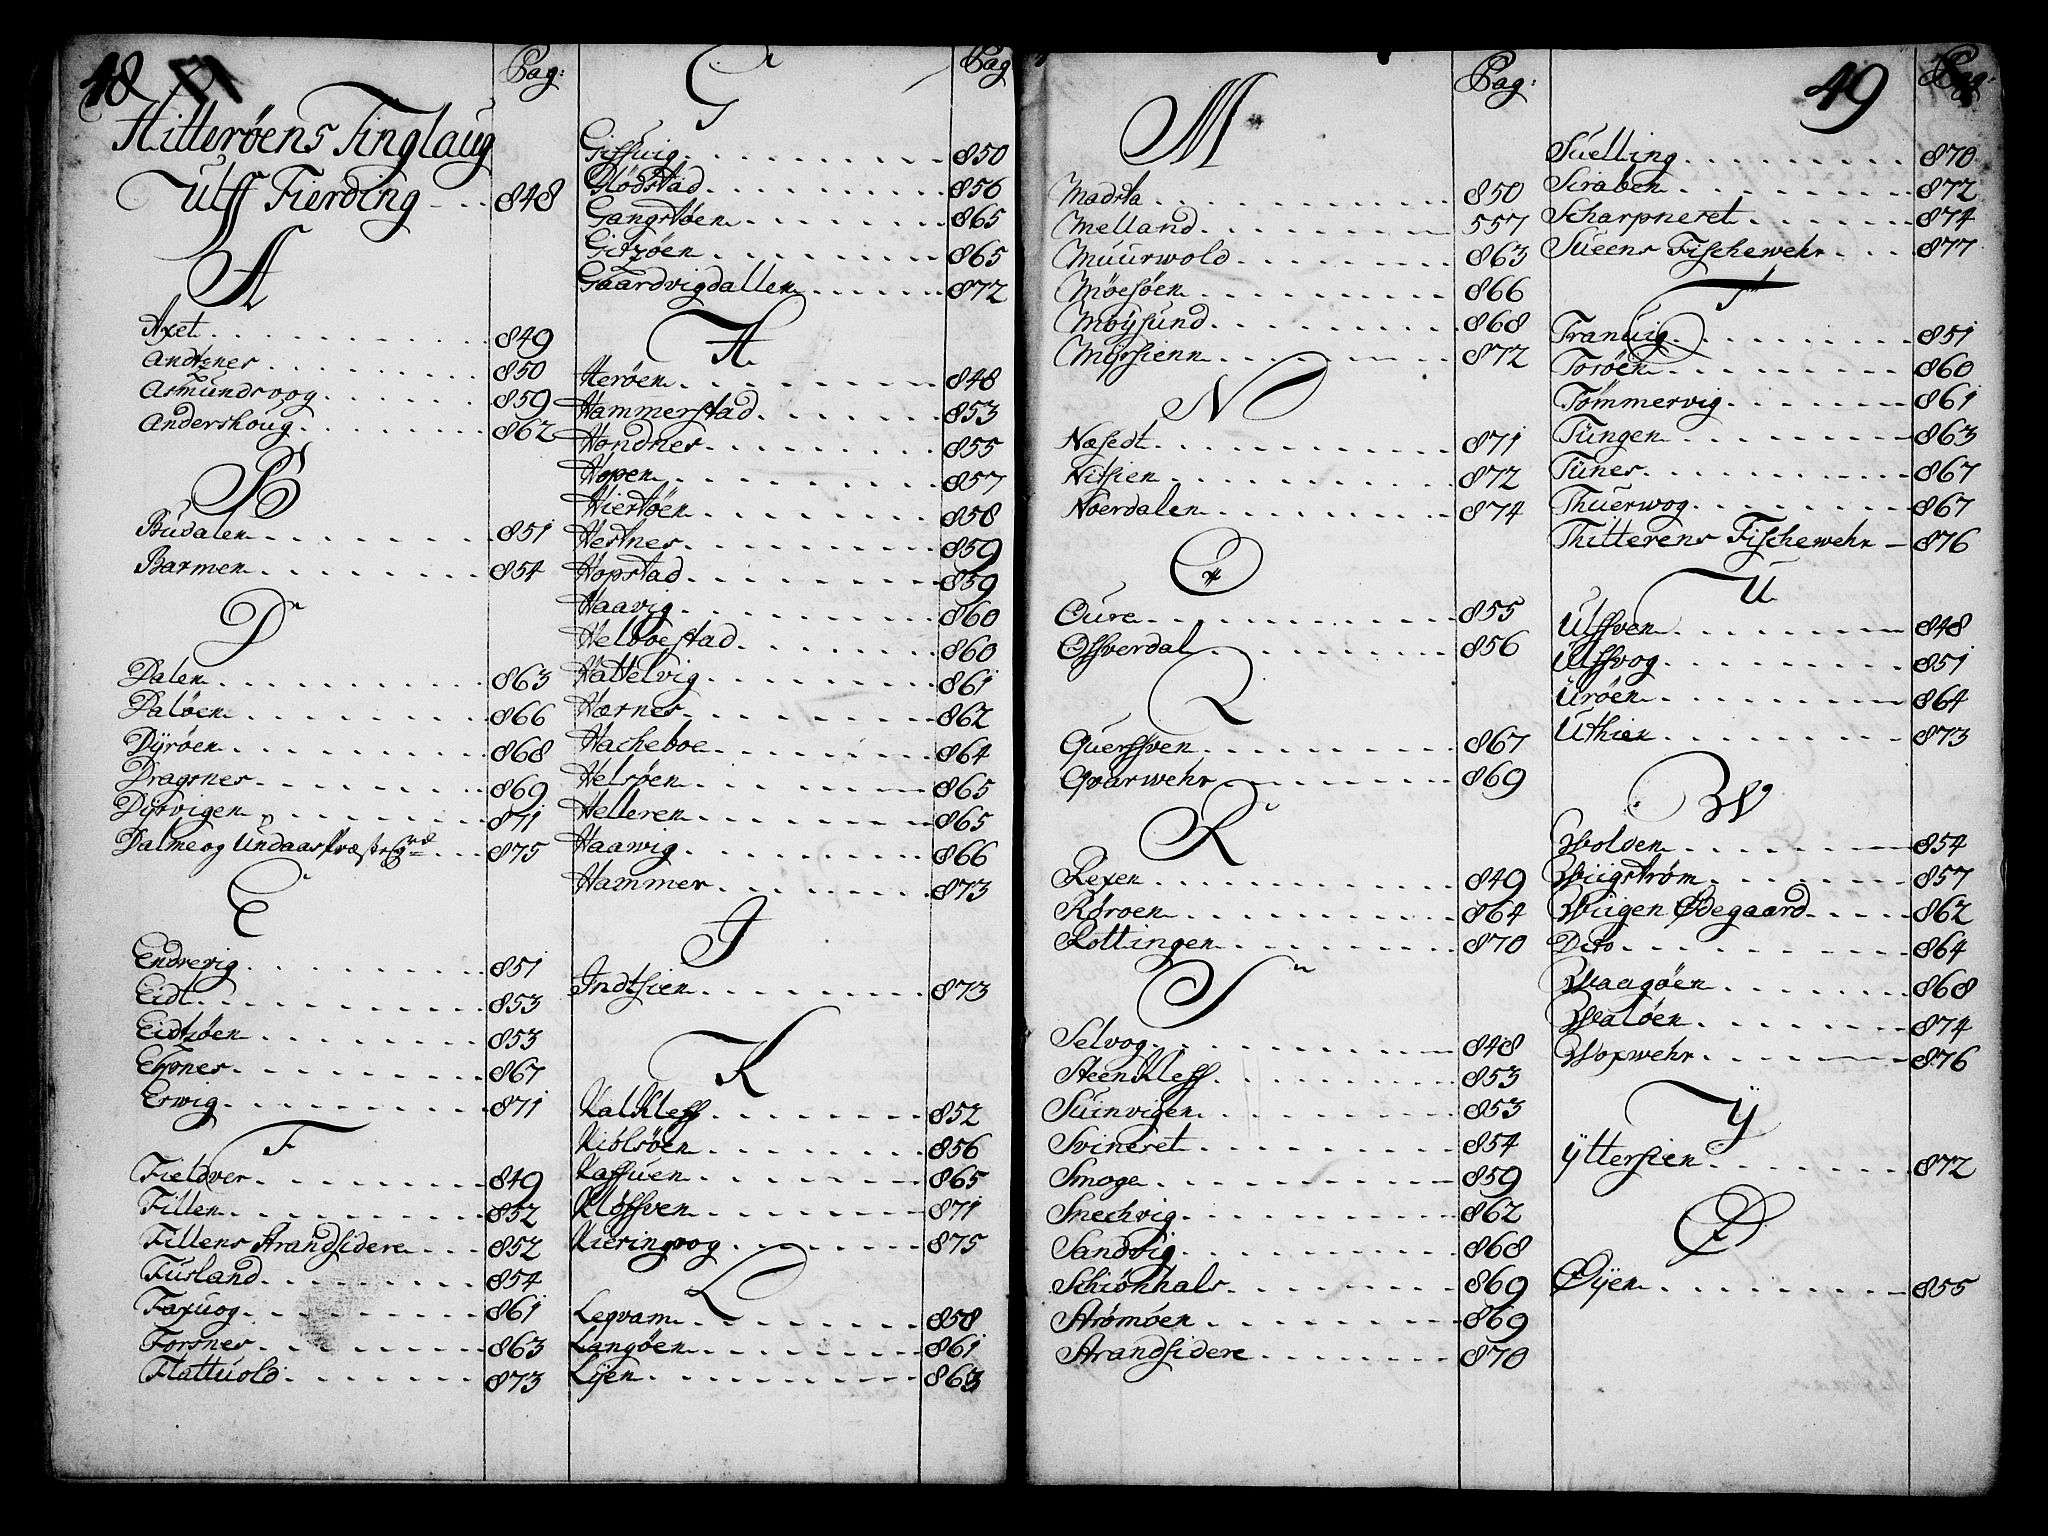 48
Pag:
Hitterøens Tinglaug
Ulff Fierding 848
A
Axet 849
Andtznes 850
Asmundvog 859
Andershoug 862
B
Budalen 851
Barmen 854
D
Dalen 863
Daløen 866
Dÿrøen 868
Dragsnes 869
Dÿrvigen 871
Dalme og Undaas 875
E
Endrevig 851
Eidt 853
Eidtzøen 853
Espnes 867
Erwig 871
F
Fieldver 849
Fillen 852
Fillens Strandsidere 852
Fusland 854
Faxuog 861
Forsnes 863
Flattuold 873
Pag
G
Gissuig 850
Glødstad 856
Gangstøen 865
Gitzøen 865
Gaardvigdallen 872
H
Herøen 848
Hammerstad 853
Hondnes 855
Hopen 857
Hiertøen 858
Hestnes 859
Hopstad 859
Haavig 860
Helboestad 860
Hattelvig 861
Hærnes 862
Hacheboe 864
Helsøen 865
Helleren 865
Haawig 866
Hammer 873
I
Indtsien 873
K
Kalkleff 852
Kiølsøen 856
Kassuen 865
Kløffven 871
Kieringvog 875
L
Leqvam 858
Langøen 861
Lÿen 863
Pag:
M
Madsta 850
Melland 557
Muurwold 863
Møesøen 866
Møÿsund 868
Mÿrsienn 872
N
Næsedt 871
Nitsien 872
Noerdalen 874
O
Oure 855
Ossverdal 856
Q
Querffven 867
Qvarwehr 869
R
Rexen 849
Røroen 864
Rottingen 870
S
Selvog 848
Steenkleff 853
Suinvigen 853
Svineret 854
Smoge 859
Snechvig 862
Sandvig 868
Schiønhals 869
Strømøen 869
Strandsidere 870
49
Pag:
Suelling 870
Siraben 872
Scharpneset 874
Sueens Fischewehr 877
T
Tranuig 851
Torøen 860
Tømmervig 861
Tungen 863
Tunes 867
Thuerwog 867
Thitterens Fischewehr 876
U
Ulffven 848
Ulffvog 851
Urøen 864
Uthien 873
W
Wolden 854
Wiigstrøm 857
Wiigen Ødegaard 862
Dito 864
Waagøen 868
Waløen 874
Woxwehr 876
Ÿ
Ÿttersien 872
Ø
Øÿen 855